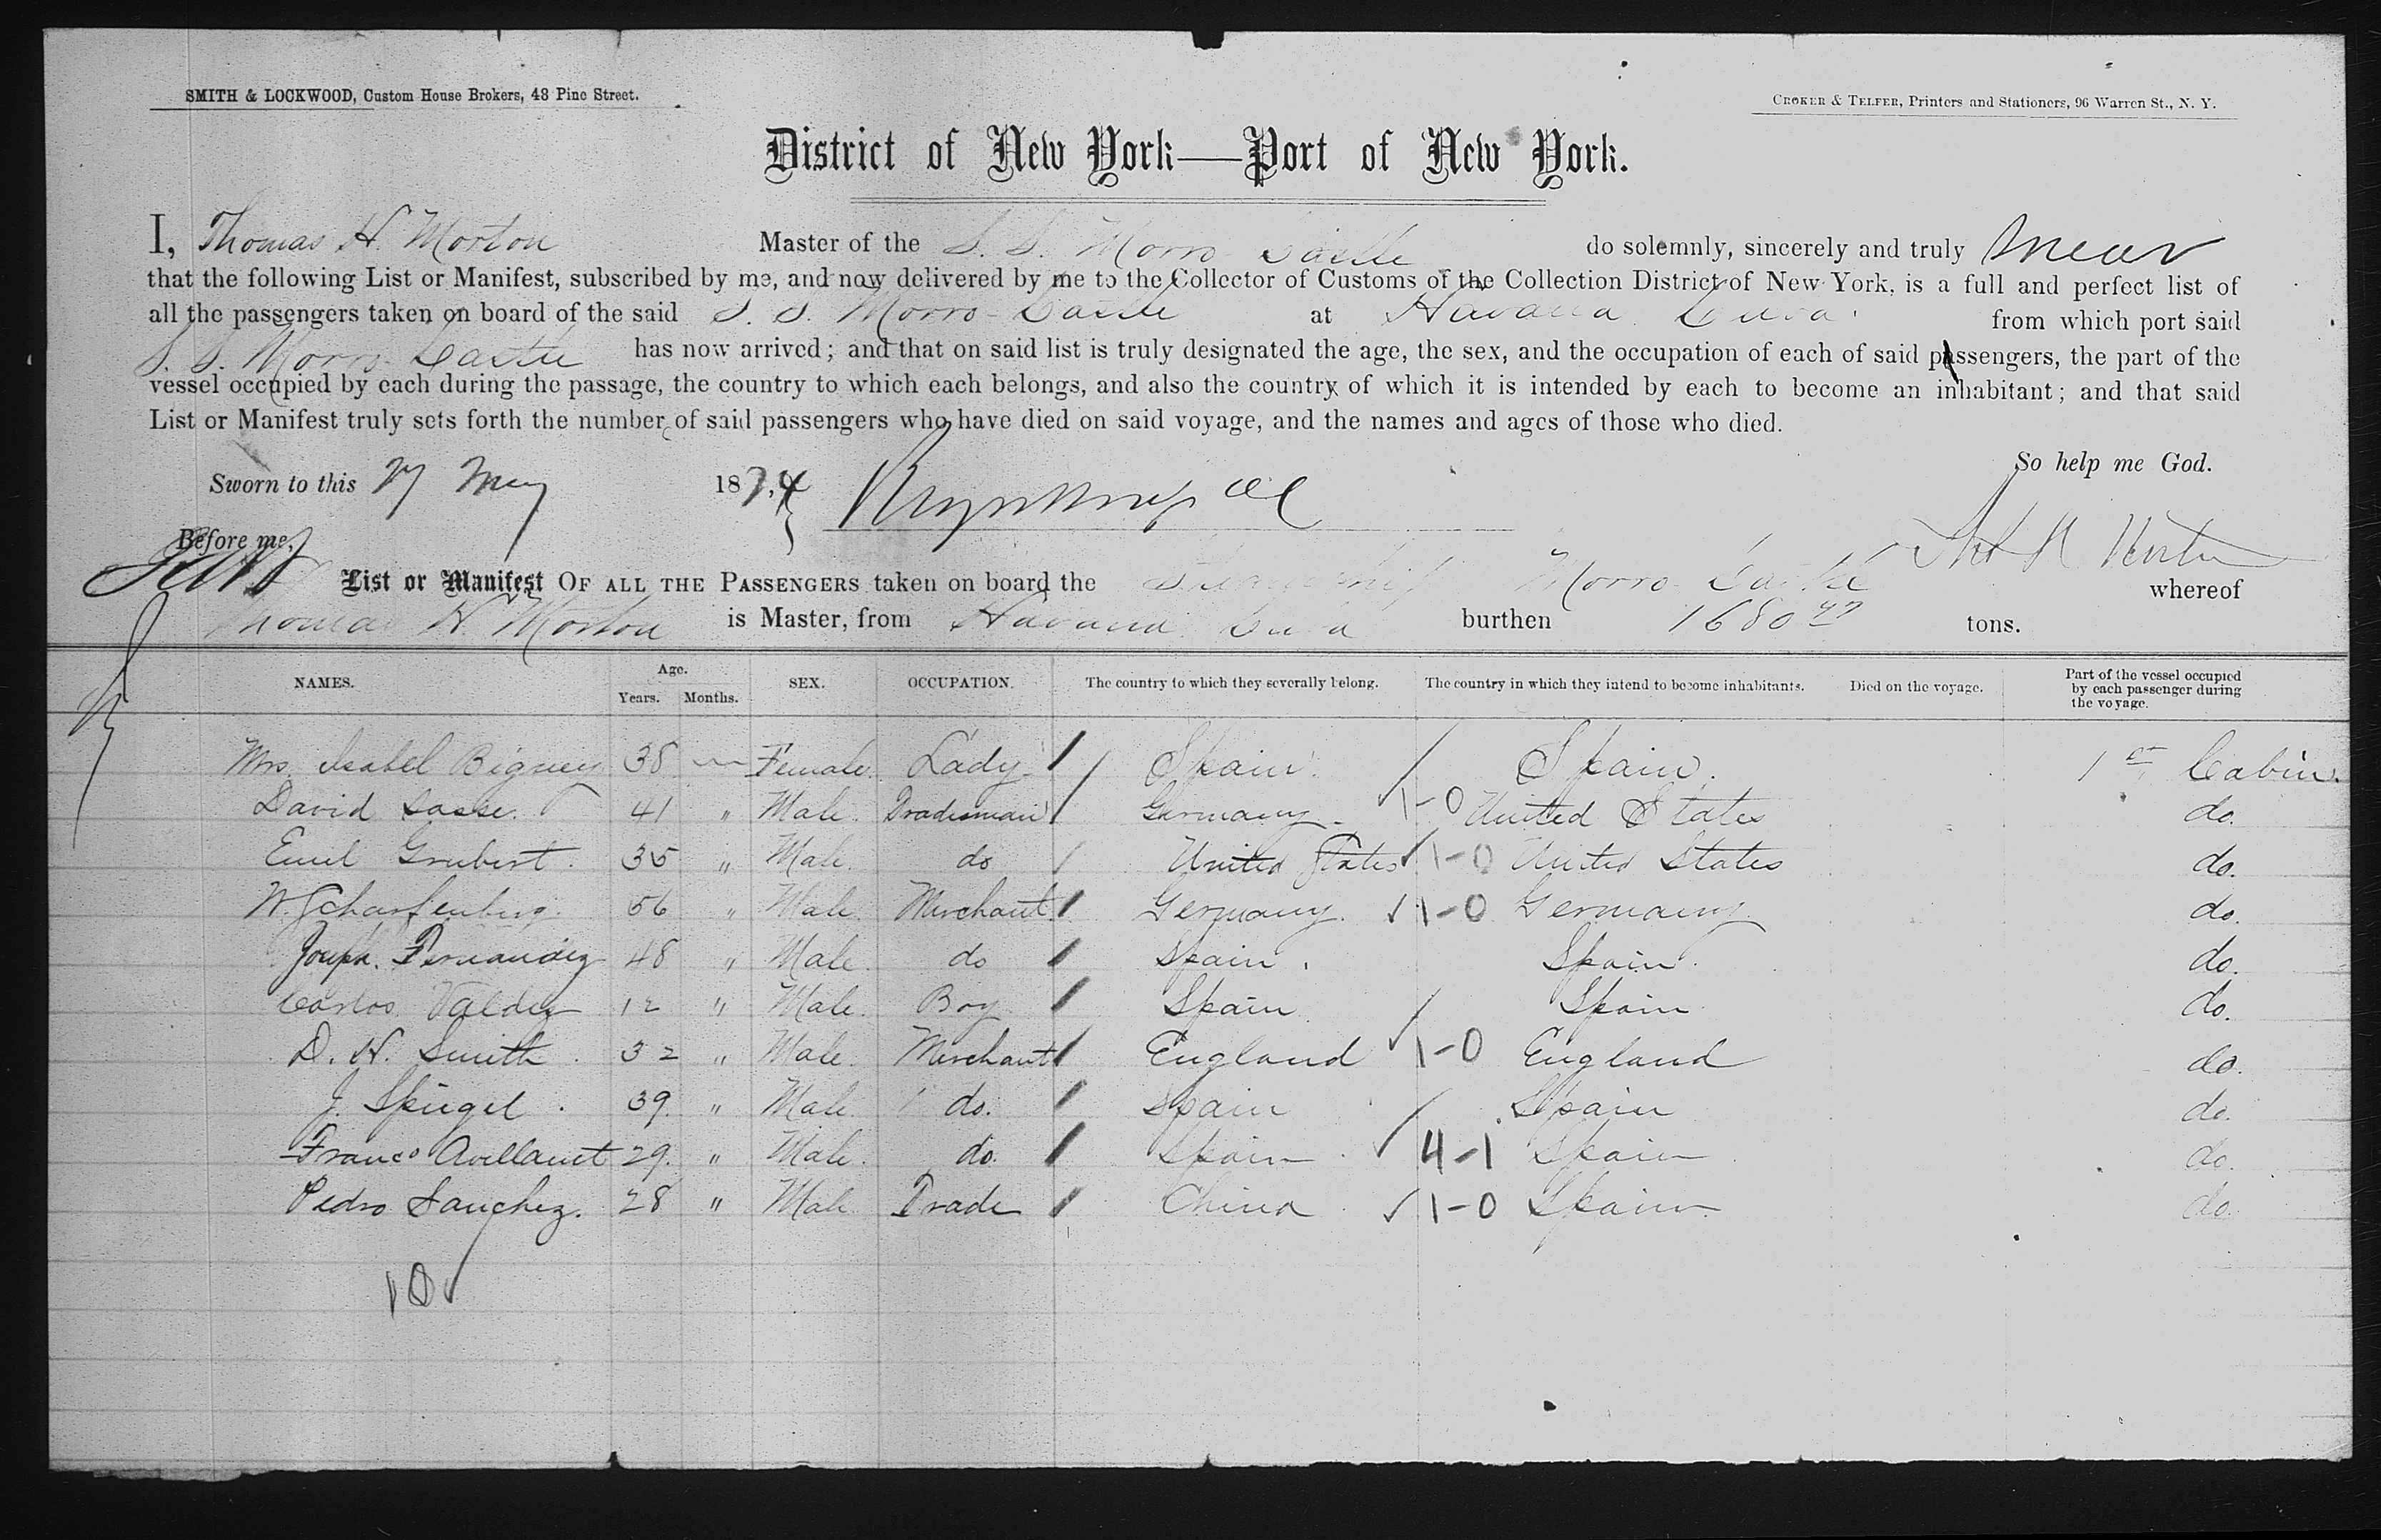 SMITH & LOCKWOOD, Custom House Brokers, 48 Pine Street.
CROKER & TELFER, Printers and Stationers, 96 Warren St., N. Y.
District of New York—Port of New York.
I, Thomas H. Morton Master of the S. S. Morro Castle do solemnly, sincerely and truly swear
that the following List or Manifest, subscribed by me, and now delivered by me to the Collector of Customs of the Collection District of New York, is a full and perfect list of
all the passengers taken on board of the said S. S. Morro Castle at Havana Cuba from which port said
S. S. Morro Castle has now arrived; and that on said list is truly designated the age, the sex, and the occupation of each of said passengers, the part of the
vessel occupied by each during the passage, the country to which each belongs, and also the country of which it is intended by each to become an inhabitant; and that said
List or Manifest truly sets forth the number of said passengers who have died on said voyage, and the names and ages of those who died.
So help me God.
Sworn to this May 1874
Before me,
List or Manifest OF ALL THE PASSENGERS taken on board the Steamship Morro Castle whereof
Thomas H. Morton is Master, from Havana Cuba burthen 1680 tons.
NAMES. Age. Years. Months. SEX. OCCUPATION. The country to which they severally belong. The country in which they intend to become inhabitants. Died on the voyage. Part of the vessel occupied by each passenger during the voyage.
Mrs. Isabel 38 Female Lady Spain Spain. 1st Cabin.
David Sasse. 41 " Male. Tradesman Germany 1-0 United States do.
Emil Grubert. 35 " Male. do United States 1-0 United States do.
W. Scharfenberg. 56 " Male. Merchant Germany. 1-0 Germany do.
Joseph. Fernandez 48 " Male. do Spain. Spain. do.
Carlos Valdez 12 " Male. Boy Spain Spain do.
D. H. Smith. 32 " Male. Merchant England 1-0 England do.
J. Spiegel. 39. " Male do. Spain Spain do.
Franco Avellanet 29. " Male. do. Spain 4-1 Spain do.
Pedro Sanchez. 28 " Male Trade China 1-0 Spain do.
10